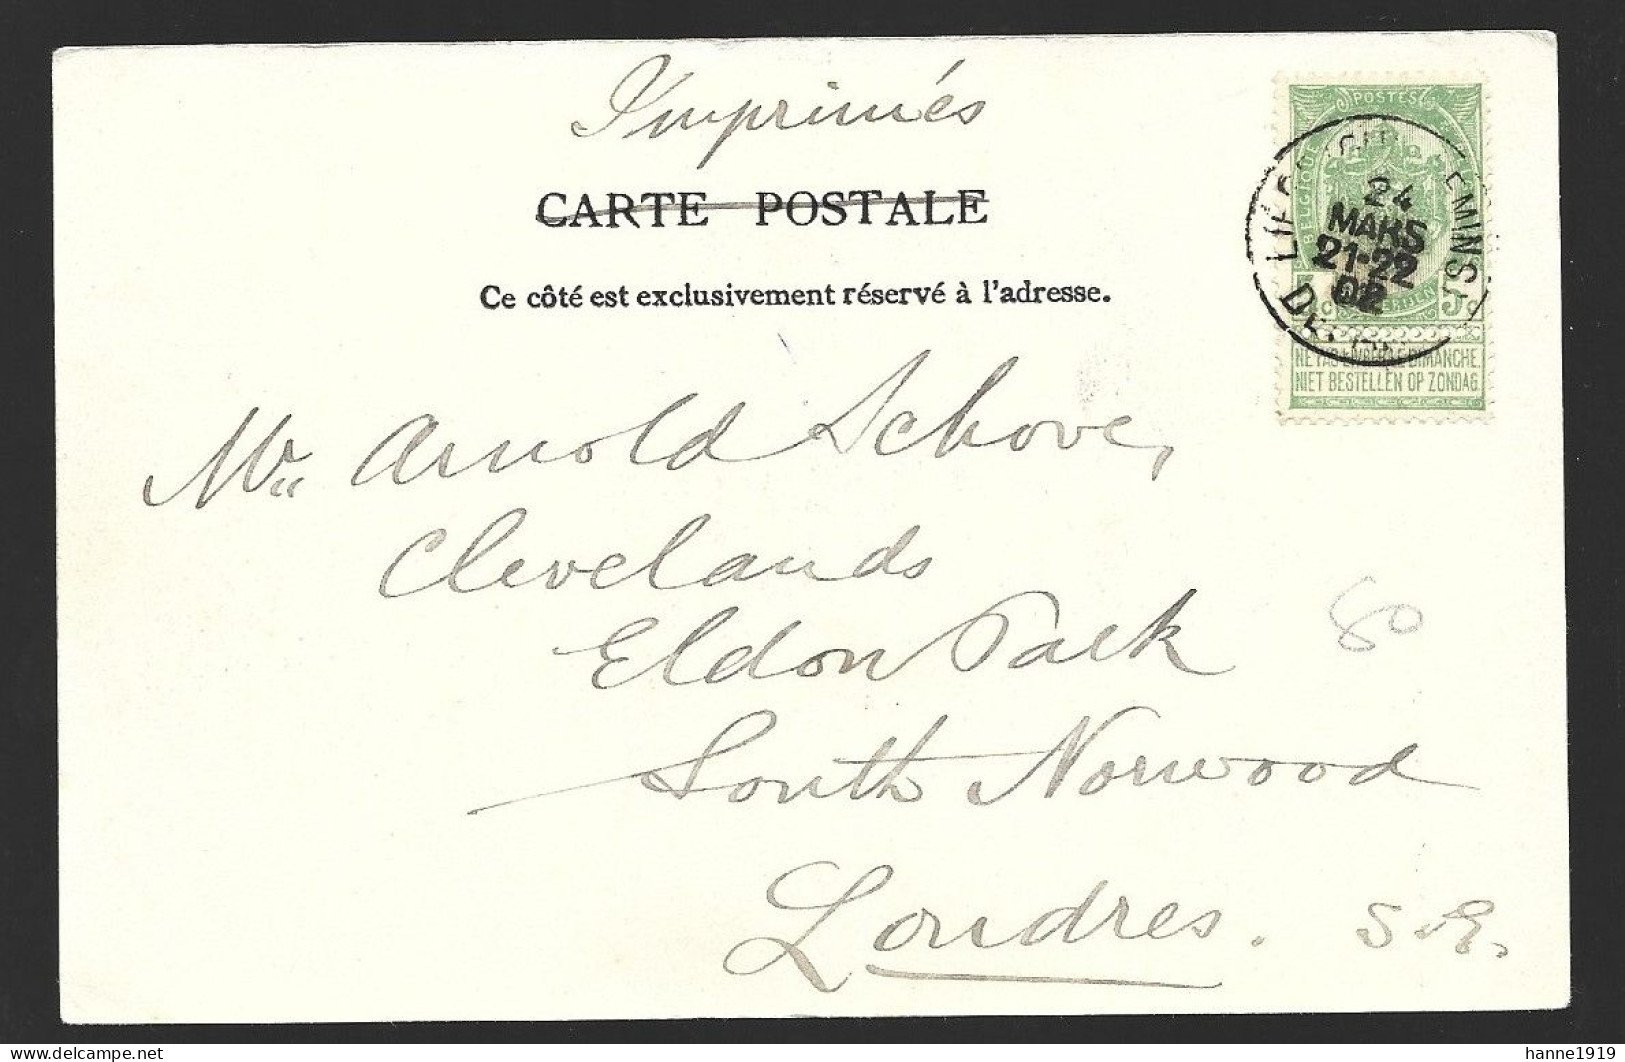 Imprimés
CARTE POSTALE
Ce côté est exclusivement réservé à l'adresse.
POSTES
BELGIQUE
24
MARS
21-22
02
NE PAS LIVRER LE DIMANCHE.
NIET BESTELLEN OP ZONDAG
Mr. Arnold Schove,
Clevelands
Eldon Park
80
South Norwood
Londres. S.E.
hanne1919